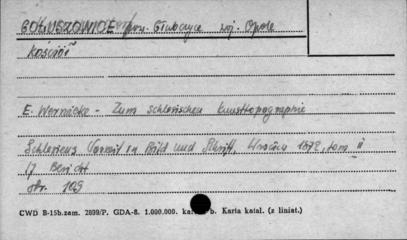 GOŁUSZOWICE pow. Głubczyce woj. Opole
Kościół
E. Wernicke - Zum schlesischen Kunsttopographie
Schlesiens Vorzeit in Bild und Schrift, Wrocław 1872, tom II
17 Bericht
str. 105
CWD B-15b. zam. 2899/P. GDA-8. 1.000.000. b. Karta katal. (z liniat.)